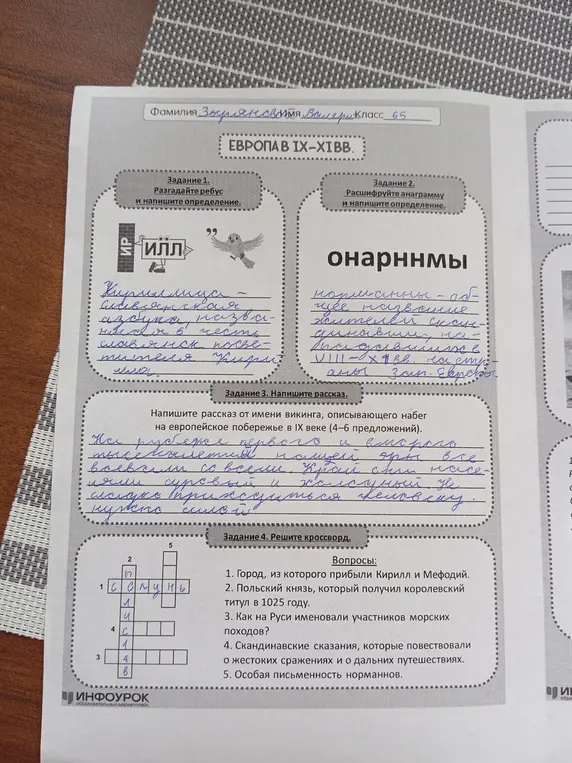 Фамилия Зырянова Имя Валерия Класс 6Б
ЕВРОПА В IX–XI ВВ.
Задание 1.
Разгадайте ребус
и напишите определение.
Задание 2.
Расшифруйте анаграмму
и напишите определение.
ИР
ИЛЛ
"
онарннмы
Кириллица –
славянская
азбука назва-
в честь
славянск просве-
тителя Кири
лла.
норманны – об-
щее название
жителей скан-
динавии, на-
падавших в
VIII–XI вв. на стр-
аны Зап. Европы
Задание 3. Напишите рассказ.
Напишите рассказ от имени викинга, описывающего набег
на европейское побережье в IX веке (4–6 предложений).
На рубеже первого и второго
тысячелетия нашей эры все
воевали со всеми. Край они насе-
ляли суровый и холодный. Не
сладко приходиться человеку.
нужно
Задание 4. Решите кроссворд.
5
2
П
1 С О Л У Н Ь
Л
4 С
3
В
Вопросы:
1. Город, из которого прибыли Кирилл и Мефодий.
2. Польский князь, который получил королевский
титул в 1025 году.
3. Как на Руси именовали участников морских
походов?
4. Скандинавские сказания, которые повествовали
о жестоких сражениях и о дальних путешествиях.
5. Особая письменность норманнов.
ИНФОУРОК